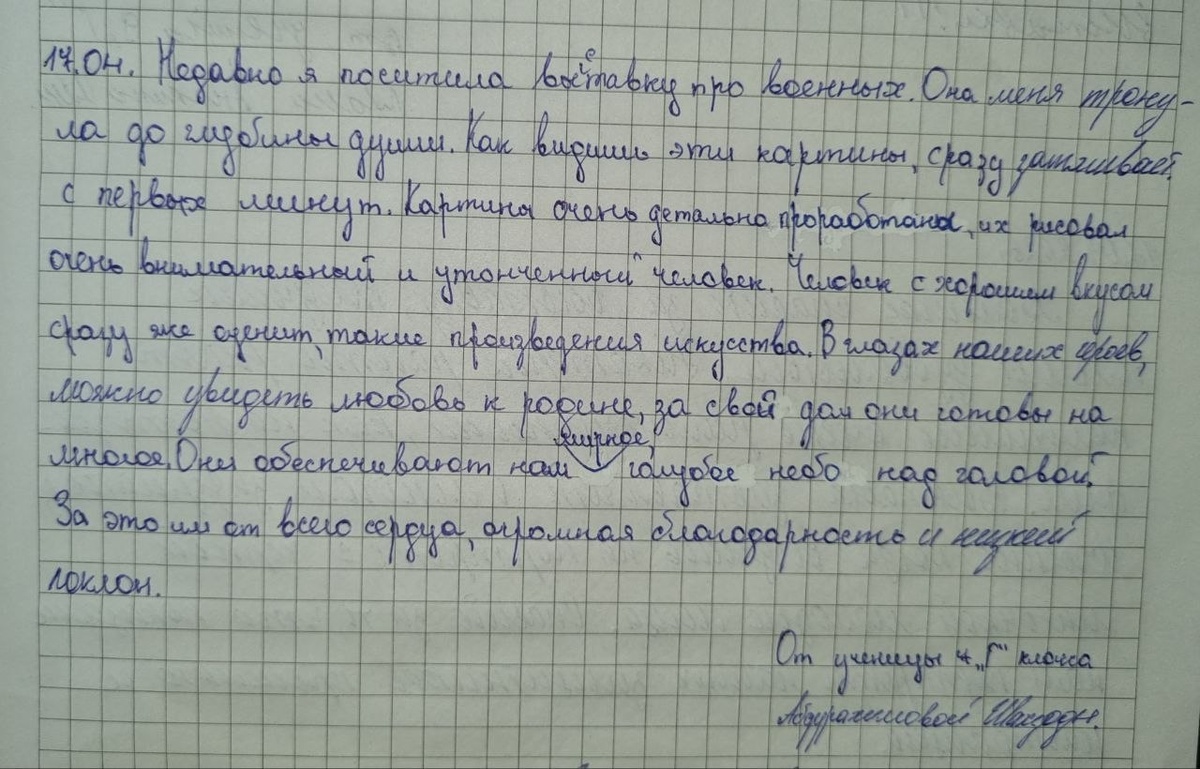 17.04. Недавно я поситила выставку про военных. Она меня трону-
ла до глубины души. Как видишь эти картины, сразу затягивает
с первых минут. Картины очень детально проработаны, их рисовал
очень внимательный и утонченный человек. Человек с хорошим вкусом
сразу же оценит, такие произведения искусства. В глазах наших героев,
можно увидеть любовь к родине, за свой дом они готовы на
многое. Они обеспечивают нам мирное, голубое небо над головой.
За это им от всего сердца, огромная благодарность и низкий
поклон.
От ученицы "Г" класса
Абдурахимовой